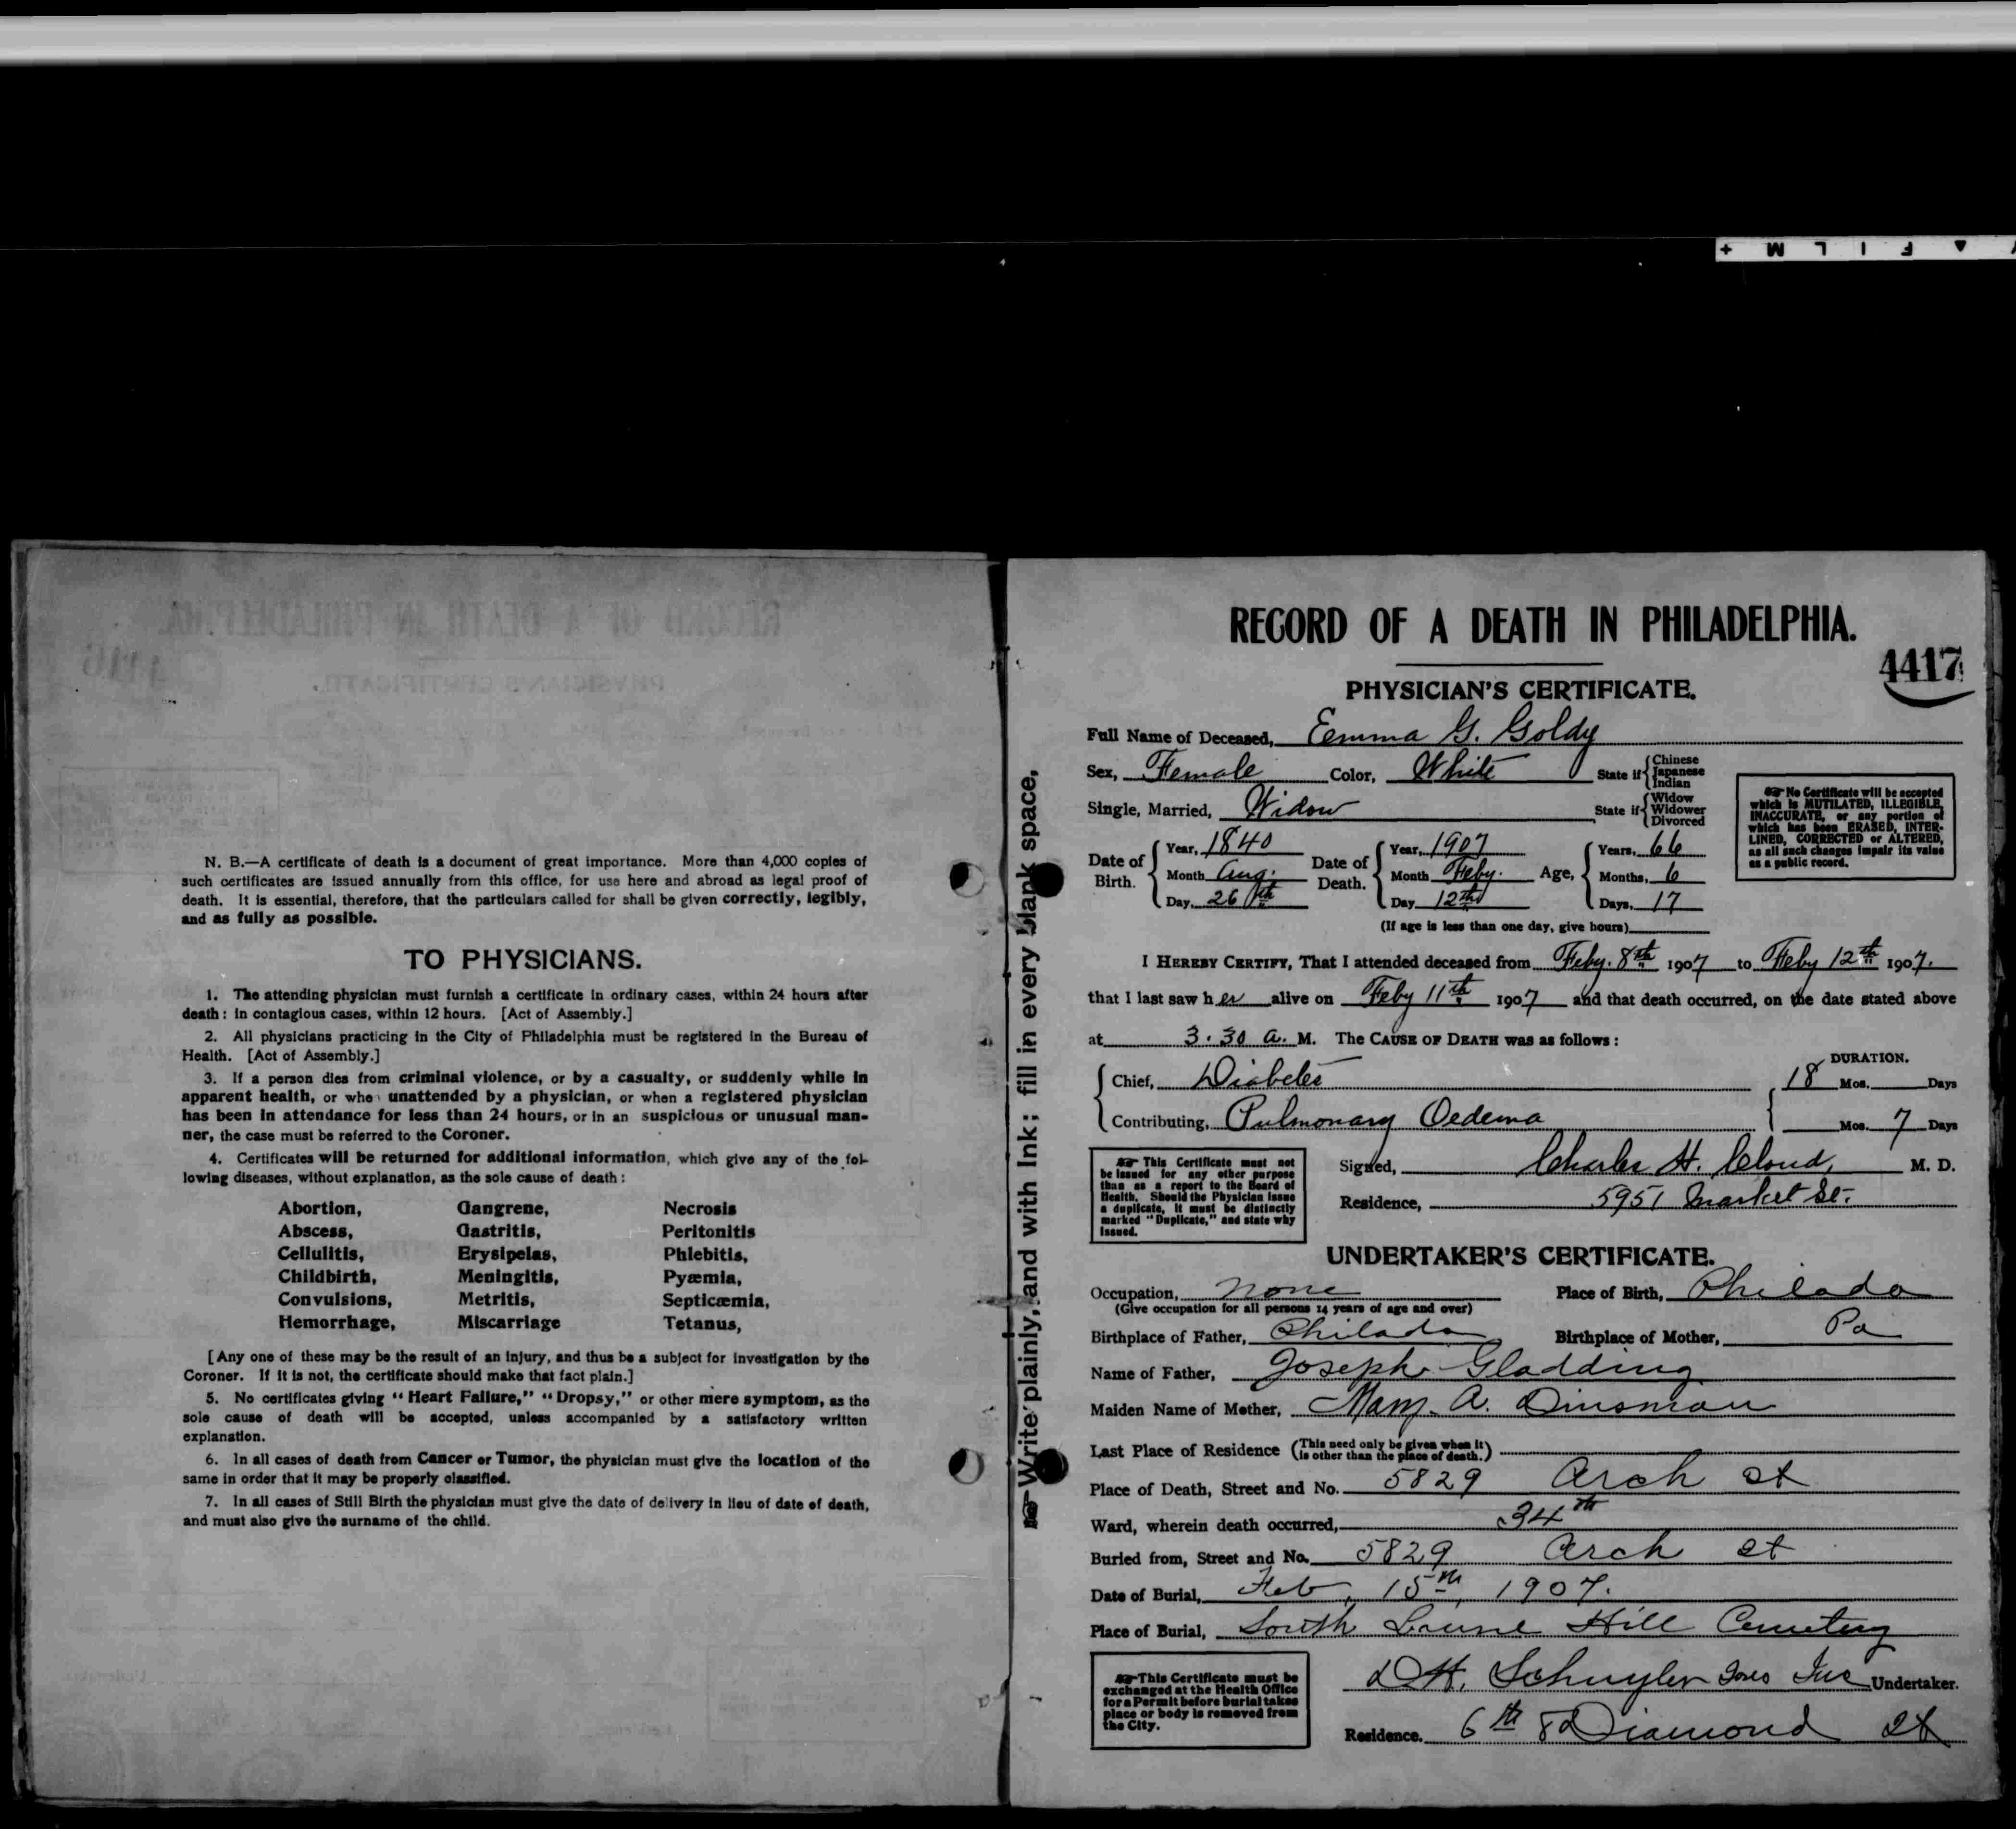 + M L I F ▲
N. B.—A certificate of death is a document of great importance. More than 4,000 copies of
such certificates are issued annually from this office, for use here and abroad as legal proof of
death. It is essential, therefore, that the particulars called for shall be given correctly, legibly,
and as fully as possible.
TO PHYSICIANS.
1. The attending physician must furnish a certificate in ordinary cases, within 24 hours after
death: in contagious cases, within 12 hours. [Act of Assembly.]
2. All physicians practicing in the City of Philadelphia must be registered in the Bureau of
Health. [Act of Assembly.]
3. If a person dies from criminal violence, or by a casualty, or suddenly while in
apparent health, or when unattended by a physician, or when a registered physician
has been in attendance for less than 24 hours, or in an suspicious or unusual man-
ner, the case must be referred to the Coroner.
4. Certificates will be returned for additional information, which give any of the fol-
lowing diseases, without explanation, as the sole cause of death:
Abortion, Gangrene, Necrosis
Abscess, Gastritis, Peritonitis
Cellulitis, Erysipelas, Phlebitis,
Childbirth, Meningitis, Pyæmia,
Convulsions, Metritis, Septicæmia,
Hemorrhage, Miscarriage Tetanus,
[Any one of these may be the result of an injury, and thus be a subject for investigation by the
Coroner. If it is not, the certificate should make that fact plain.]
5. No certificates giving "Heart Failure," "Dropsy," or other mere symptom, as the
sole cause of death will be accepted, unless accompanied by a satisfactory written
explanation.
6. In all cases of death from Cancer or Tumor, the physician must give the location of the
same in order that it may be properly classified.
7. In all cases of Still Birth the physician must give the date of delivery in lieu of date of death,
and must also give the surname of the child.
Write plainly, and with Ink; fill in every blank space,
RECORD OF A DEATH IN PHILADELPHIA.
4417
PHYSICIAN'S CERTIFICATE.
Full Name of Deceased, Emma G. Goldy
Sex, Female Color, White State if Chinese Japanese Indian
Single, Married, Widow State if Widow Widower Divorced
No Certificate will be accepted
which is MUTILATED, ILLEGIBLE,
INACCURATE, or any portion of
which has been ERASED, INTER-
LINED, CORRECTED or ALTERED,
as all such changes impair its value
as a public record.
Date of Birth. Year, 1840 Date of Death. Year, 1907 Age, Years, 66
Month Aug. Month Feby. Months, 6
Day, 26th Day 12th Days, 17
(If age is less than one day, give hours)
I HEREBY CERTIFY, That I attended deceased from Feby. 8th 1907 to Feby 12th 1907.
that I last saw her alive on Feby 11th 1907 and that death occurred, on the date stated above
at 3.30 a. M. The CAUSE OF DEATH was as follows:
DURATION.
Chief, Diabetes 18 Mos. Days
Contributing, Pulmonary Oedema Mos. 7 Days
This Certificate must not
be issued for any other purpose
than as a report to the Board of
Health. Should the Physician issue
a duplicate, it must be distinctly
marked "Duplicate," and state why
issued.
Signed, Charles H. Cloud, M. D.
Residence, 5951 Market St.
UNDERTAKER'S CERTIFICATE.
Occupation, None Place of Birth, Philada
(Give occupation for all persons 14 years of age and over)
Birthplace of Father, Philada Birthplace of Mother, Pa
Name of Father, Joseph Gladding
Maiden Name of Mother, Mary A. Dinsman
Last Place of Residence (This need only be given when it is other than the place of death.)
Place of Death, Street and No. 5829 Arch st
Ward, wherein death occurred, 34th
Buried from, Street and No. 5829 Arch st
Date of Burial, Feb 15th, 1907.
Place of Burial, South Laurel Hill Cemetery
This Certificate must be
exchanged at the Health Office
for a Permit before burial takes
place or body is removed from
the City.
D H. Schuyler Sons Inc Undertaker.
Residence. 6th & Diamond st